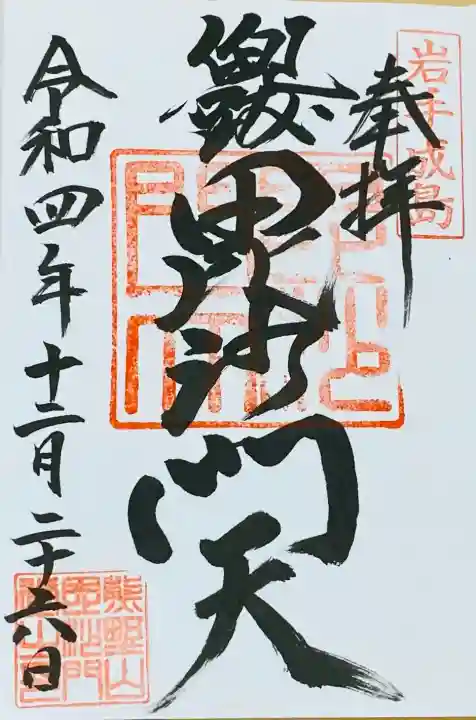 岩手成島
奉拝
毘沙門天
令和四年十二月二十六日
熊野山
毘沙門